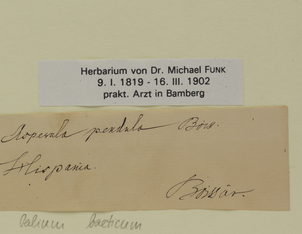 Herbarium von Dr. Michael FUNK
9. I. 1819 - 16. III. 1902
prakt. Arzt in Bamberg
Asperula pendula Boiss.
Hispania.
Boissier.
Galium baeticum